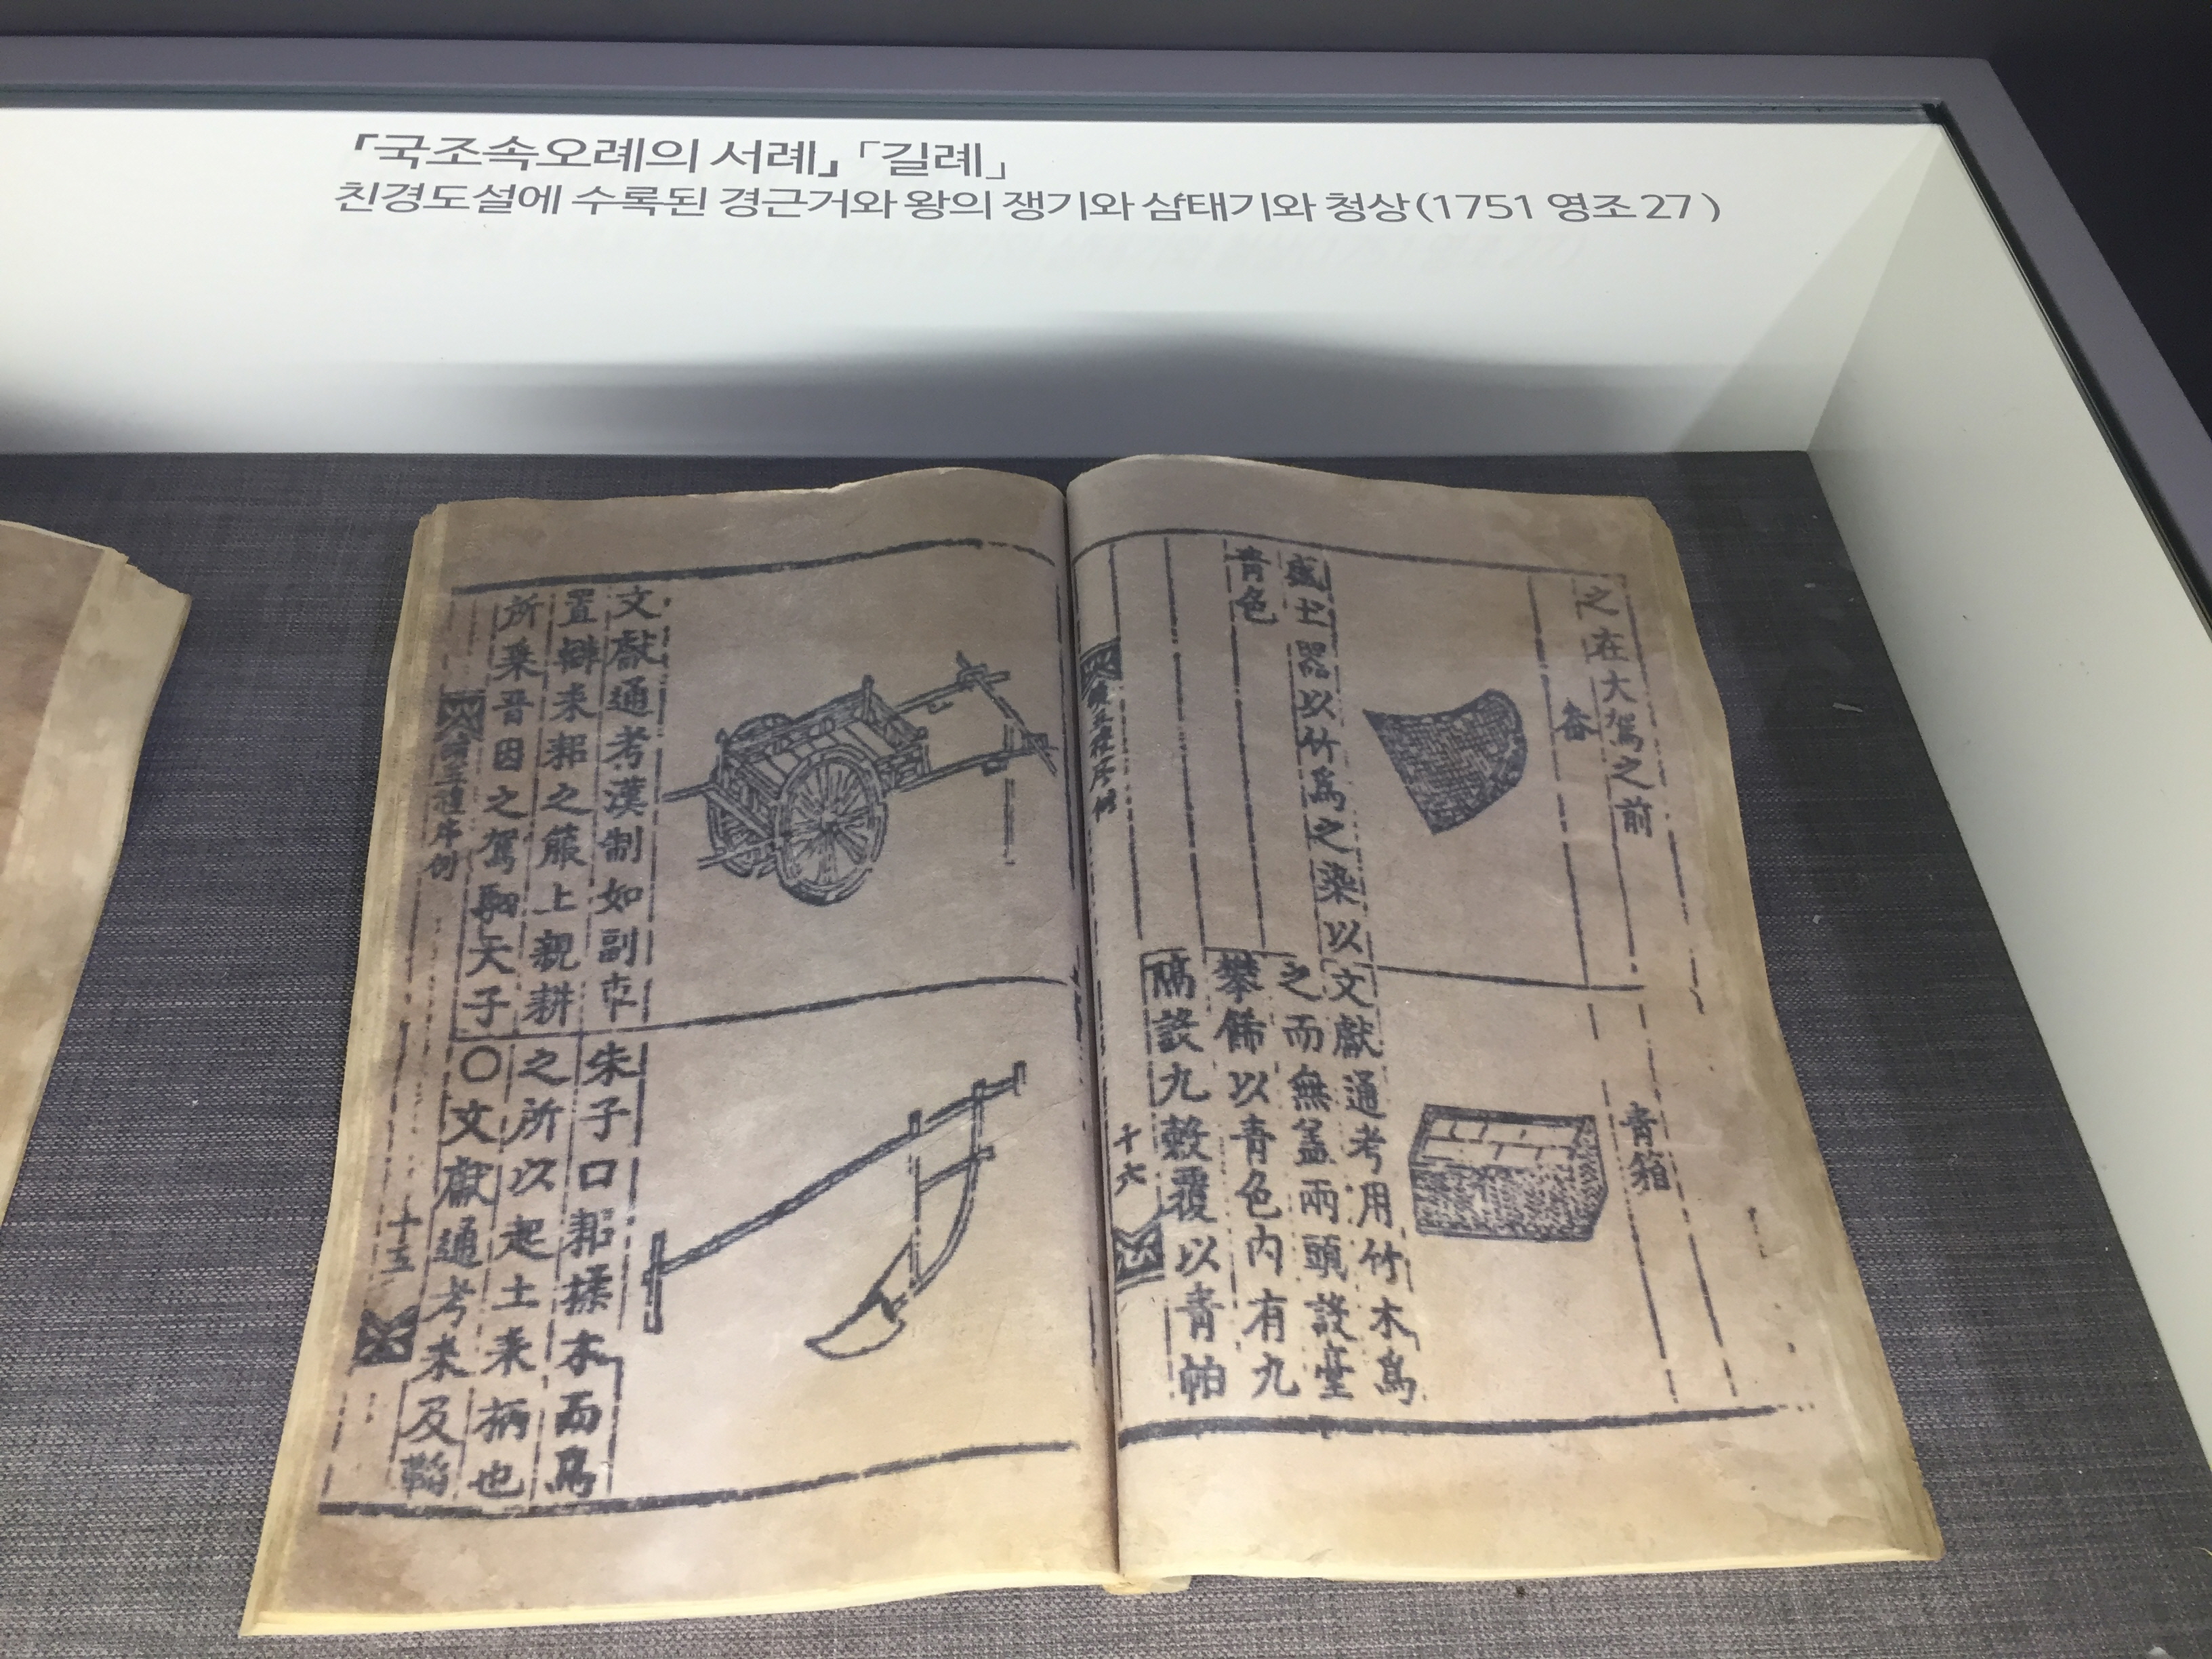 『국조속오례의 서례』「길례」
친경도설에 수록된 경근거와 왕의 쟁기와 삼태기와 청상(1751 영조 27 )
文獻通考漢制如副
置轓耒耜之箙上親耕
所乗晋因之駕駟天子
朱子曰耜揉木而爲
之所以起土耒柄也
○文獻通考耒及鞱
續五禮序例
十五
之在大駕之前
畚
盛土器以竹爲之染以
青色
青箱
文獻通考用竹木爲
之而無盖兩頭設臺
攀餙以青色内有九
隔設九穀覆以青帕
續五禮序例
十六